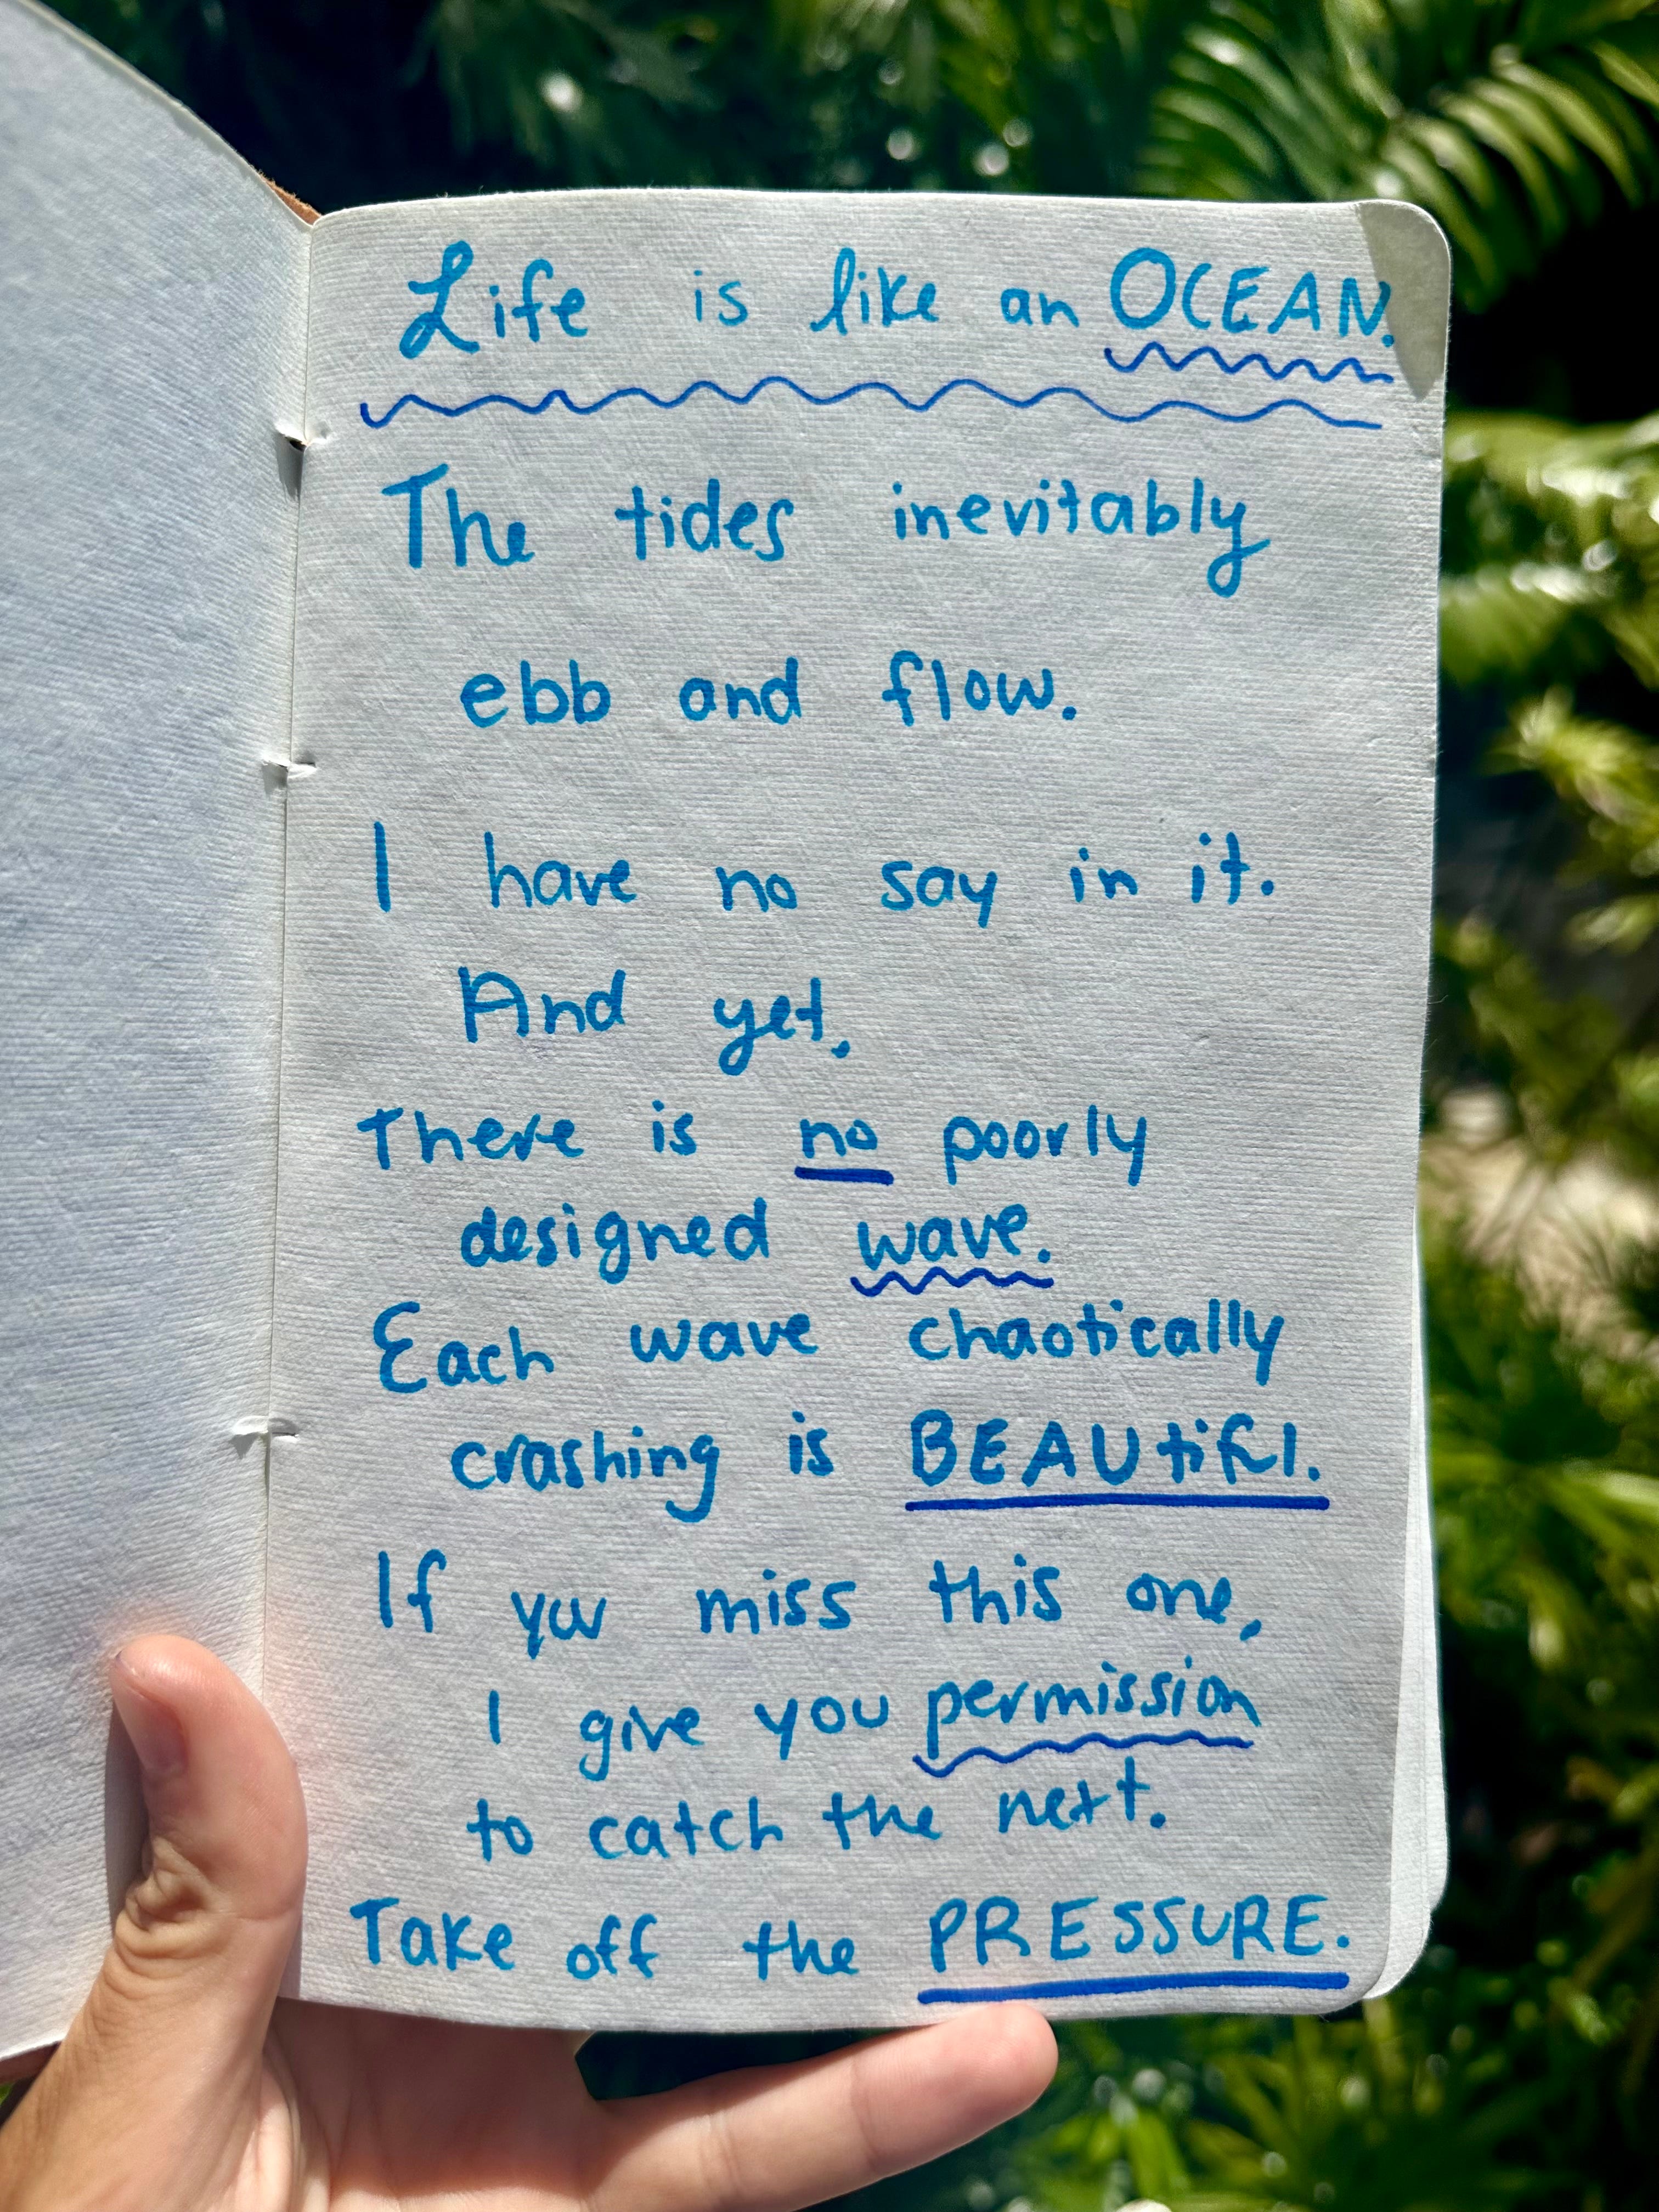 Life is like an OCEAN.
The tides inevitably
ebb and flow.
I have no say in it.
And yet,
There is no poorly
designed wave.
Each wave chaotically
crashing is BEAUtiful.
If you miss this one,
I give you permission
to catch the next.
Take off the PRESSURE.